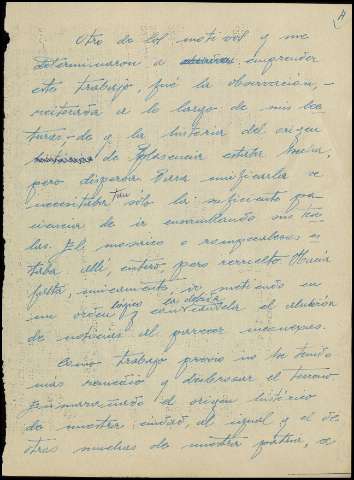 4
Otro de los motivos y me
determinaron a emprender
este trabajo, fué la observación,
reiterada a lo largo de mis lec
turas, de q la historia del origen
de Plasencia estaba hecha,
pero dispersa. Para unificarla se
necesitaba tan sólo la suficiente pa
ciencia de ir ensamblando sus te
las. El mosaico o rompecabezas es
taba allí, entero, pero revuelto. Hacía
falta, unicamente, ir metiendo en
un orden lógico y la debida el aluvión
de noticias al parecer inconexas.
Como trabajo previo no he tenido
mas remedio q desbrozar el terreno
enmarañado de origen histórico
de nuestra ciudad, al igual q el de
otras muchas de nuestra patria, a